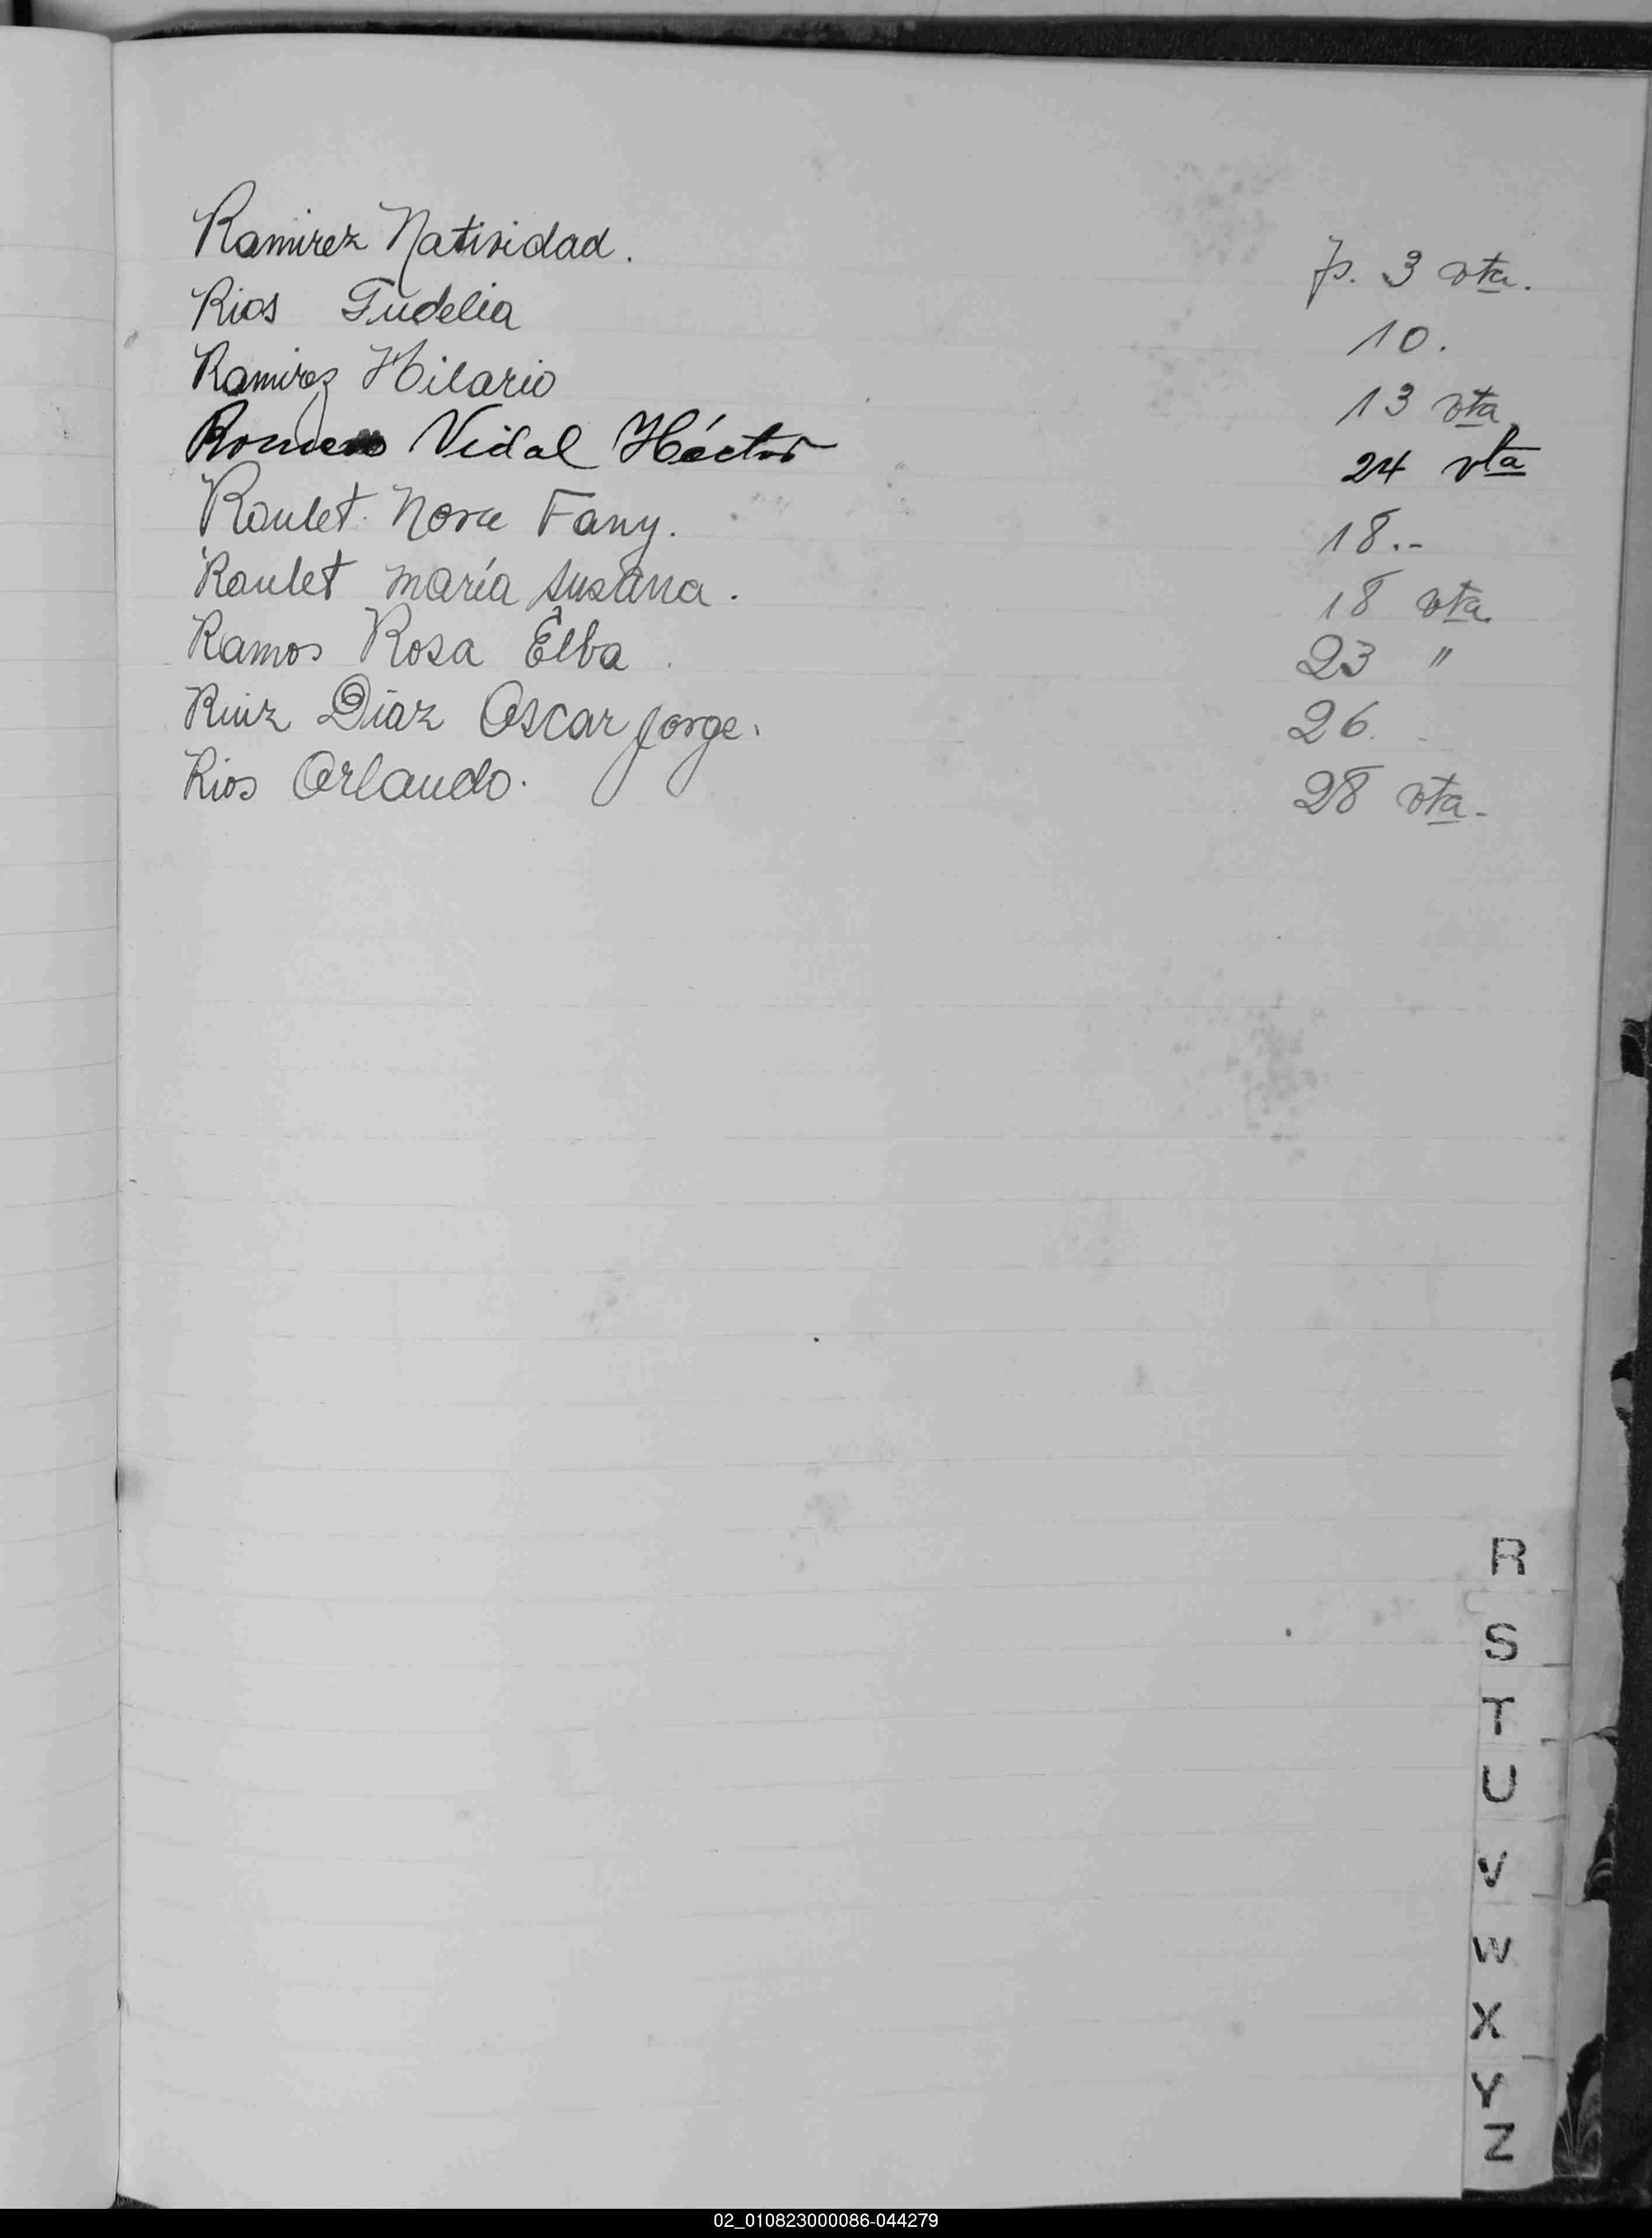 Ramirez Natividad. fs. 3 vta.
Rios Tudelia 10.
Ramirez Hilario 13 vta
Romero Vidal Héctor 24 vta
Raulet Nora Fany. 18.-
Raulet maría susana. 18 vta.
Ramos Rosa Elba. 23 "
Ruiz Díaz Oscar Jorge. 26.
Rios Orlando. 28 vta-
R
S
T
U
V
W
X
Y
Z
02_010823000086-044279